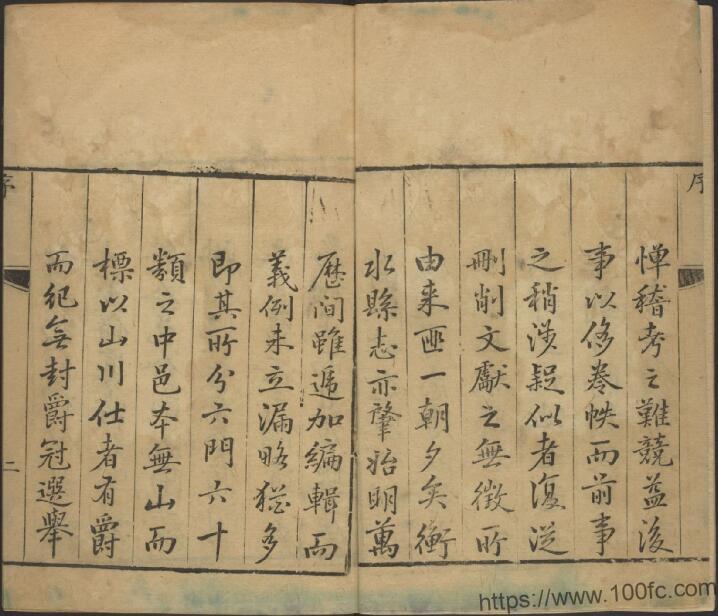 序
憚稽考之難競益後
事以侈卷帙而前事
之稍涉疑似者復從
刪削文獻之無徵所
由来匪一朝夕矣衡
水縣志亦肇始明萬
歷间雖遞加編輯而
義例未立漏略猶多
即其所分六門六十
類之中邑本無山而
標以山川仕者有爵
而紀無封爵冠選舉
序
二
https://www.100fc.com